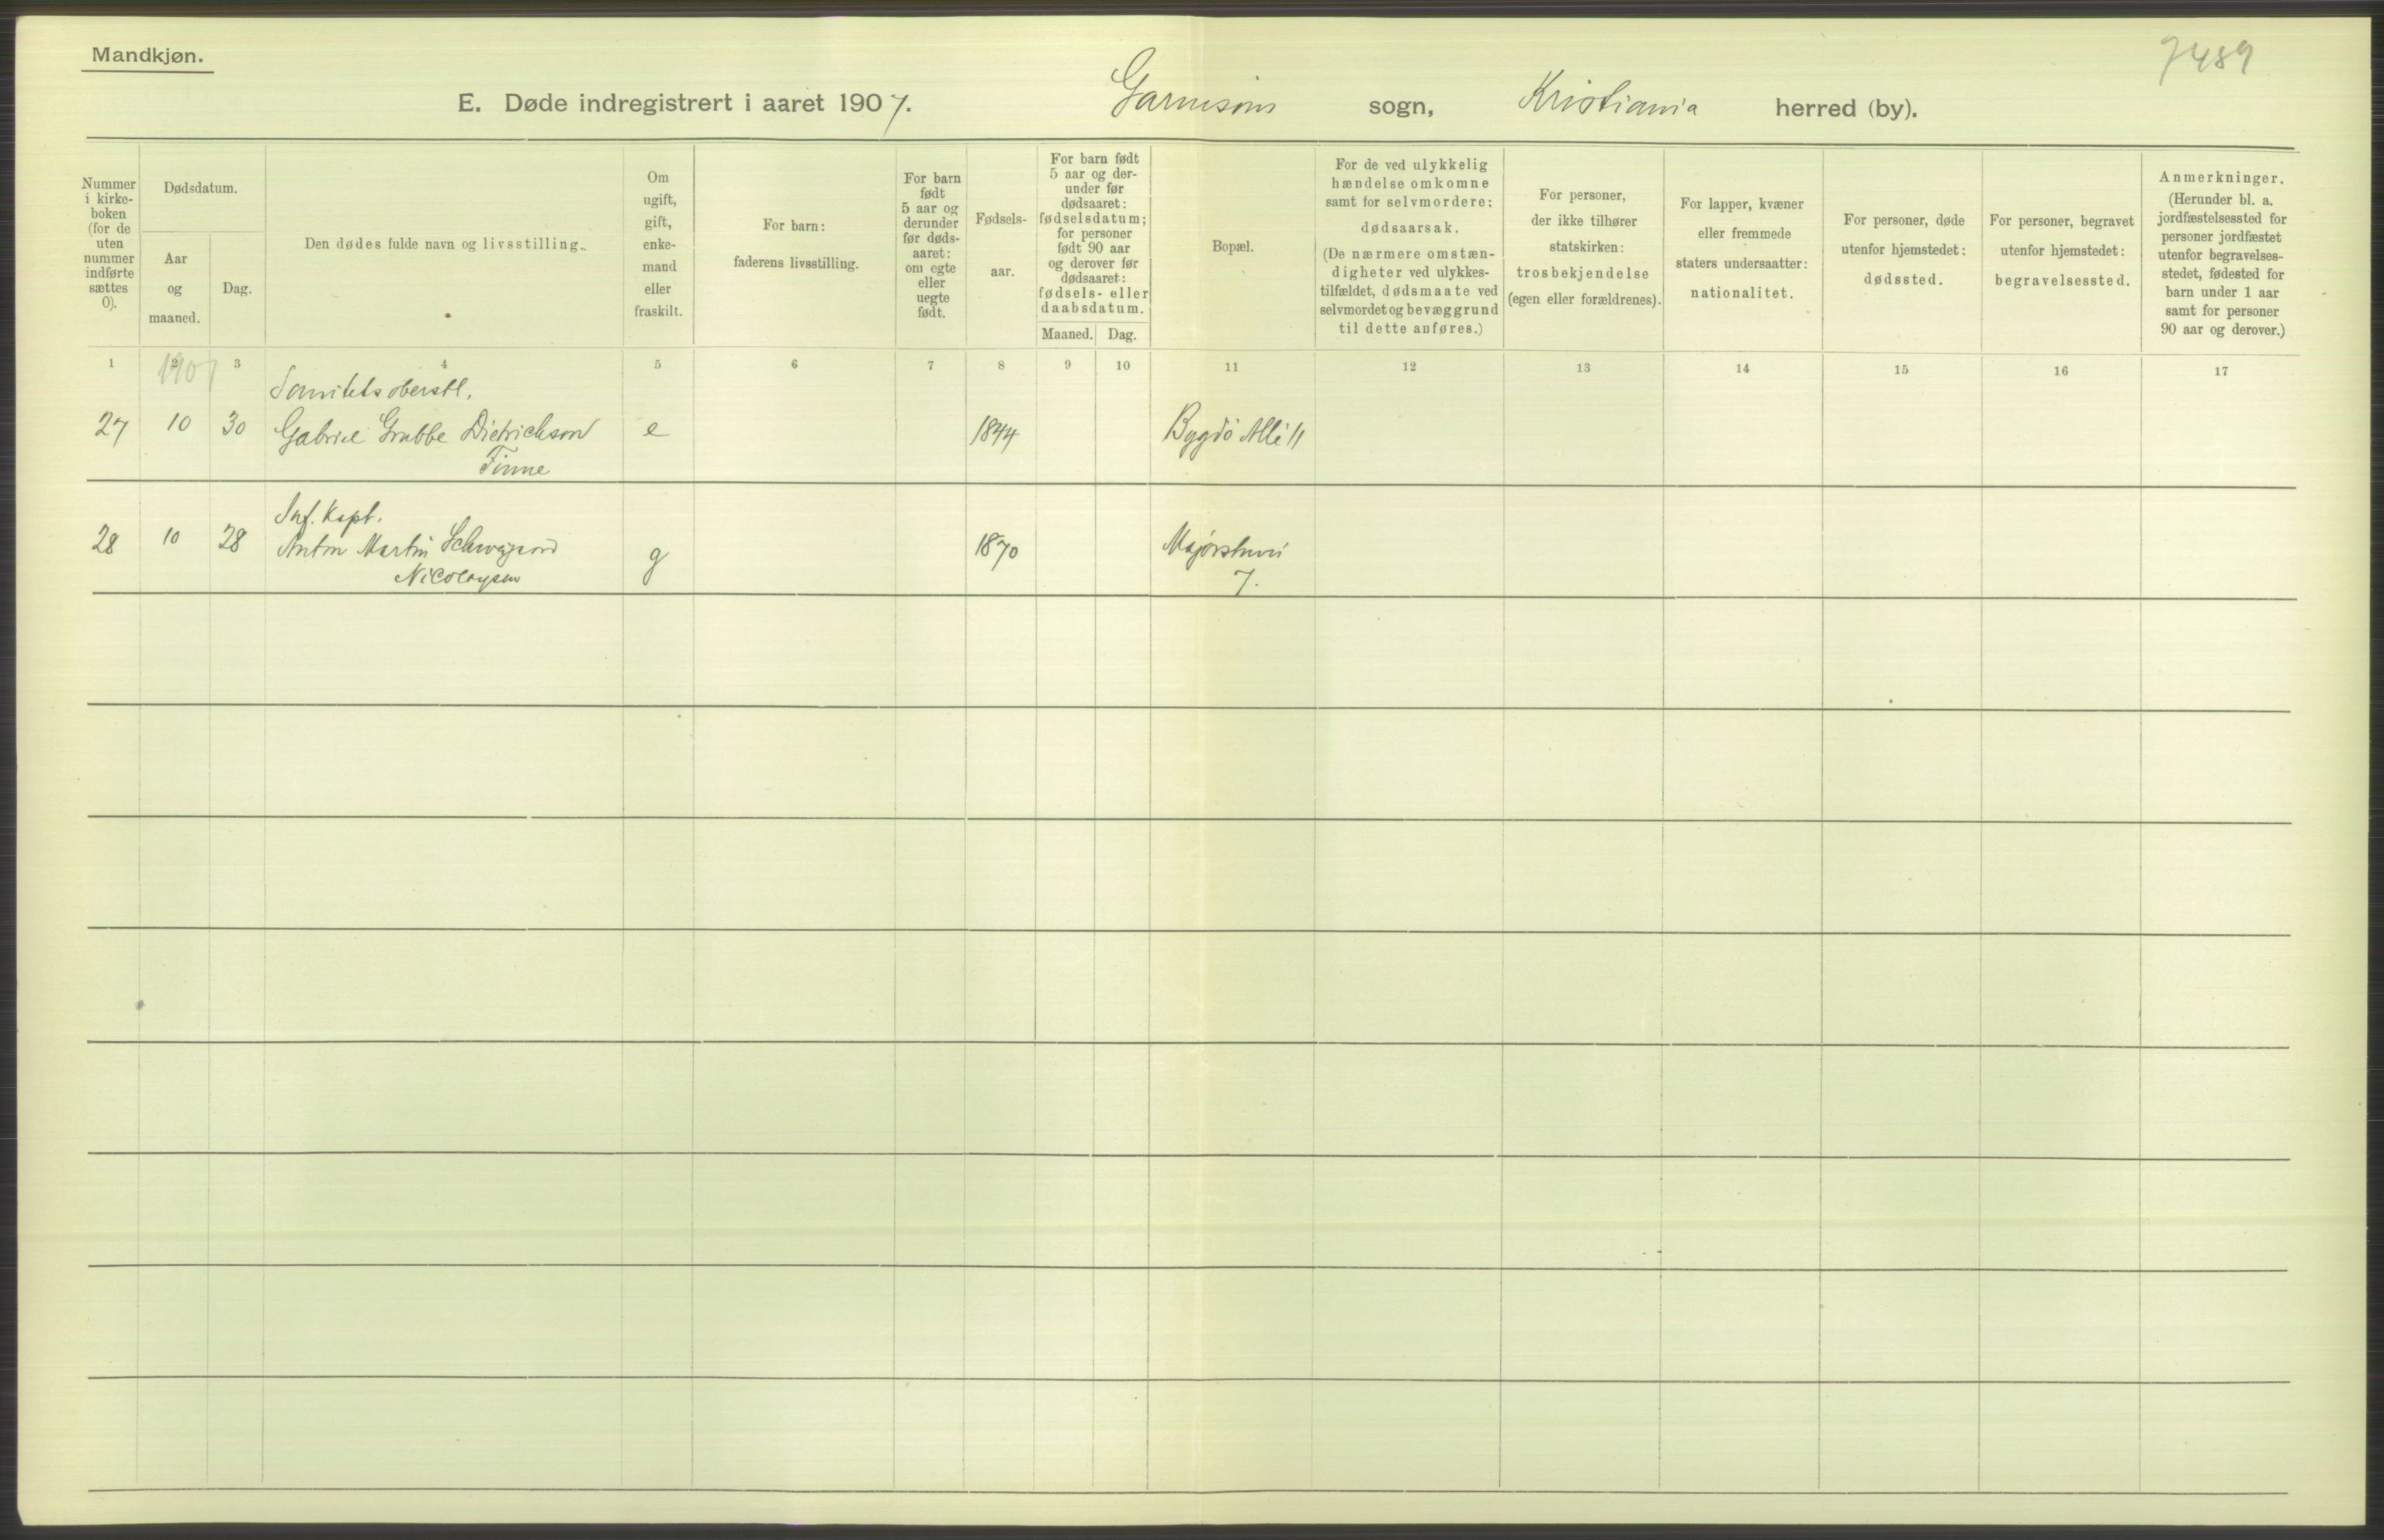 Mandkjøn.
7489
E. Døde indregistrert i aaret 1907. Garnisons sogn, Kristiania herred (by).
Nummer
i kirke-
boken
(for de
uten
nummer
indførte
sættes
0).
Dødsdatum.
Aar
og
maaned.
Dag.
Den dødes fulde navn og livsstilling.
Om
ugift,
gift,
enke-
mand
eller
fraskilt.
For barn:
faderens livsstilling.
For barn
født
5 aar og
derunder
før døds-
aaret:
om egte
eller
uegte
født.
Fødsels-
aar.
For barn født
5 aar og der-
under før
dødsaaret:
fødselsdatum;
for personer
født 90 aar
og derover før
dødsaaret:
fødsels- eller
daabsdatum.
Maaned. Dag.
Bopæl.
For de ved ulykkelig
hændelse omkomne
samt for selvmordere:
dødsaarsak.
(De nærmere omstæn-
digheter ved ulykkes-
tilfældet, dødsmaate ved
selvmordet og bevæggrund
til dette anføres.)
For personer,
der ikke tilhører
statskirken:
trosbekjendelse
(egen eller forældrenes).
For lapper, kvæner
eller fremmede
staters undersaatter:
nationalitet.
For personer, døde
utenfor hjemstedet:
dødssted.
For personer, begravet
utenfor hjemstedet:
begravelsessted.
Anmerkninger.
(Herunder bl. a.
jordfæstelsessted for
personer jordfæstet
utenfor begravelses-
stedet, fødested for
barn under 1 aar
samt for personer
90 aar og derover.)
1 2 3 4 5 6 7 8 9 10 11 12 13 14 15 16 17
1907
Sanitetsoberstl.
27 10 30 Gabriel Grubbe Dietrichson e 1844 Bygdö Allé 11
Finne
Inf. Kapt.
28 10 28 Anton Martin Schweigaard g 1870 Majorstuvei
Nicolaysen 7.